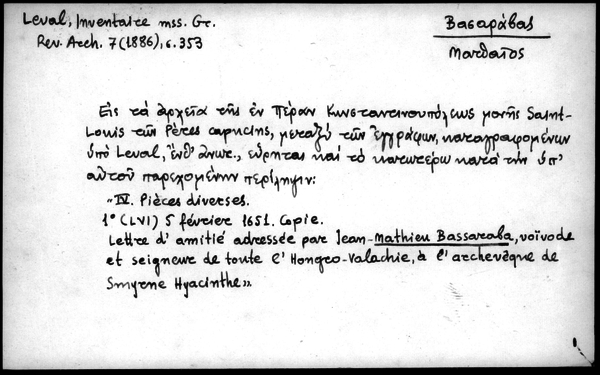 Leval, Inventaire mss. Gr.
Rev. Arch. 7 (1886), σ. 353
Βασαράβας
Ματθαῖος
Εἰς τὰ ἀρχεῖα τῆς ἐν Πέραν Κωνσταντινουπόλεως μονῆς Saint-
Louis τῶν Pères capucins, μεταξὺ τῶν ἐγγράφων, καταγραφομένων
ὑπὸ Leval, ἔνθ' ἄνωτ., εὕρηται καὶ τὸ κατωτέρω κατὰ τὴν ὑπ'
αὐτοῦ παρεχομένην περίληψιν:
"IV. Pièces diverses.
1° (LVI) 5 février 1651. Copie.
Lettre d'amitié adressée par Jean-Mathieu Bassaraba, voïvode
et seigneur de toute l'Hongro-Valachie, à l'archevêque de
Smyrne Hyacinthe».
1